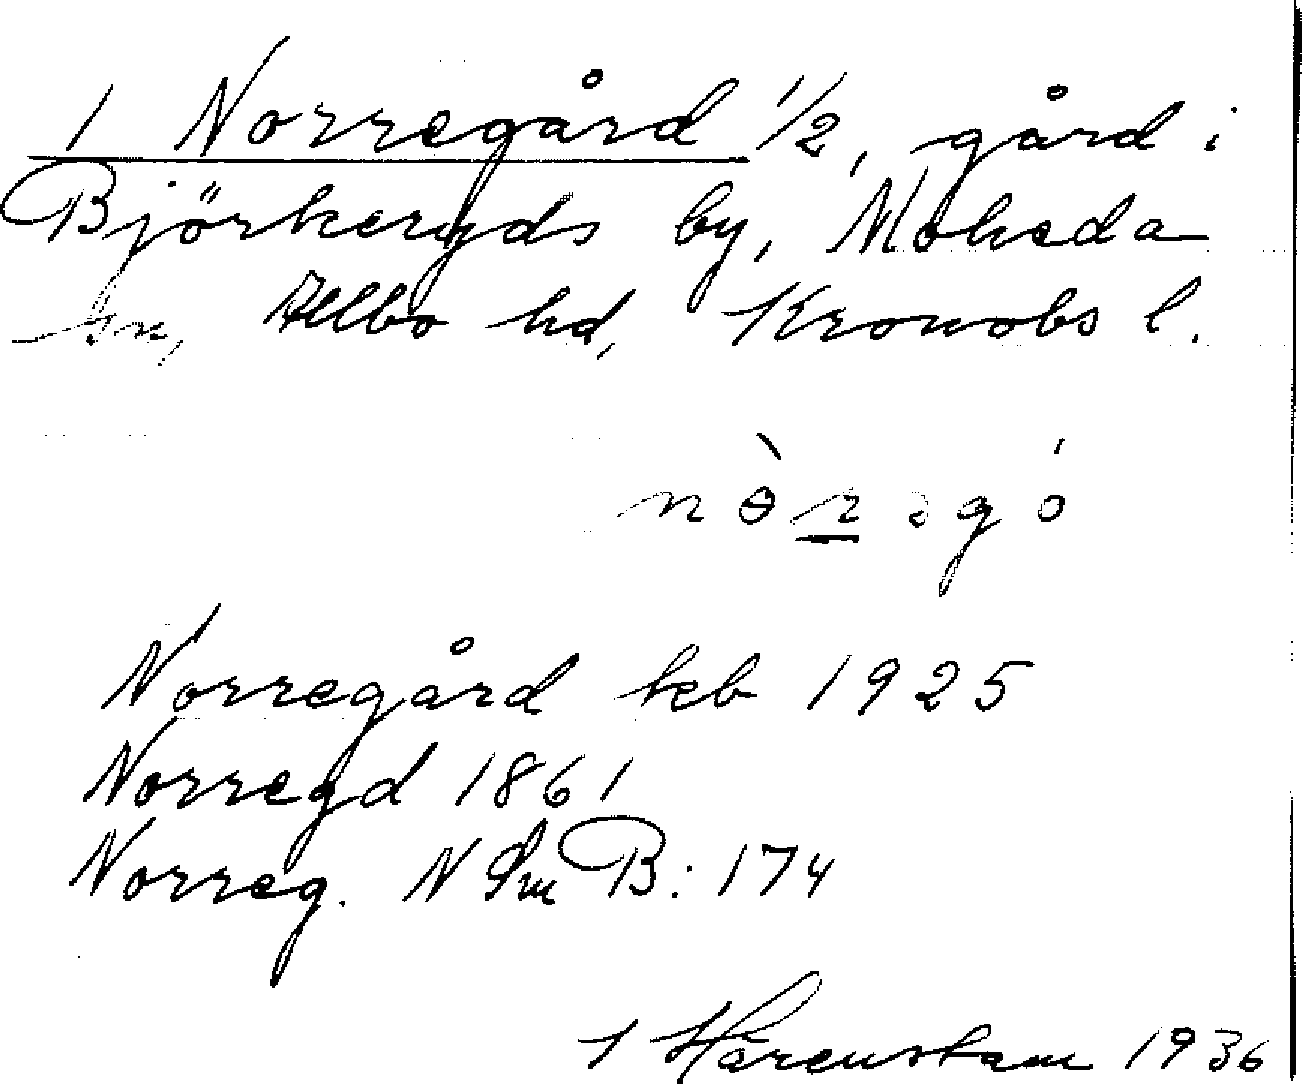 1 Norregård 1/2, gård i
Björkeryds by, Moheda
sn, Allbo hd, Kronobs l.
nɵ̀rəgó
Norregård keb 1925
Norregd 1861
Norreg. N Sm B: 174
J Hårenstam 1936